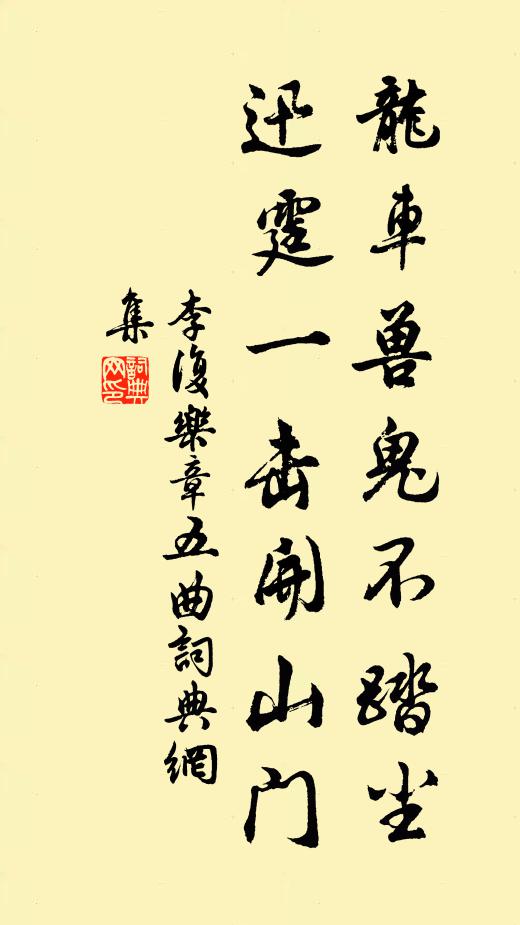 龍車兽鬼不踏尘
迅霆一击開山门
李復樂章五曲詞典網
集
詞典
网印